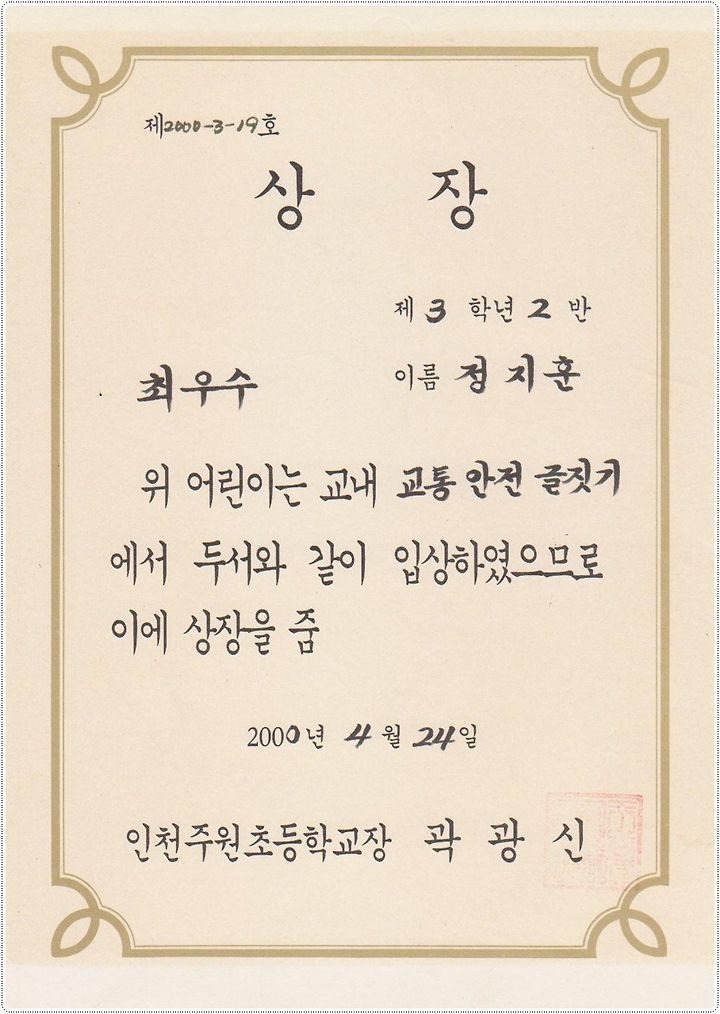 제2000-3-19호
상 장
제 3 학년 2 반
이름 정지훈
최우수
위 어린이는 교내 교통 안전 글짓기
에서 두서와 같이 입상하였으므로
이에 상장을 줌
2000년 4월 24일
인천주원초등학교장 곽광신